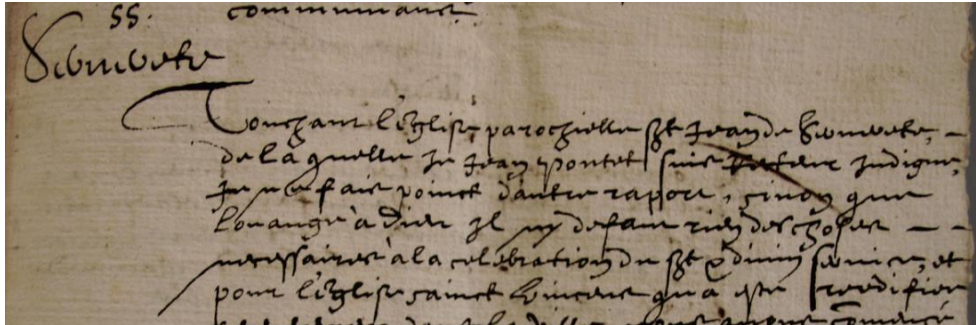 ss. communiant.
Touchant l'église parochielle St Jean de
de laquelle je Jean pontet suis Recteur indigne,
je ne fais poinct d'autre raport, sinon que
louange à dieu il ny defaut rien des choses
necessaires à la celebration du St & divin service, et
pour l'église sainct Vincent qu'a esté reedifiee